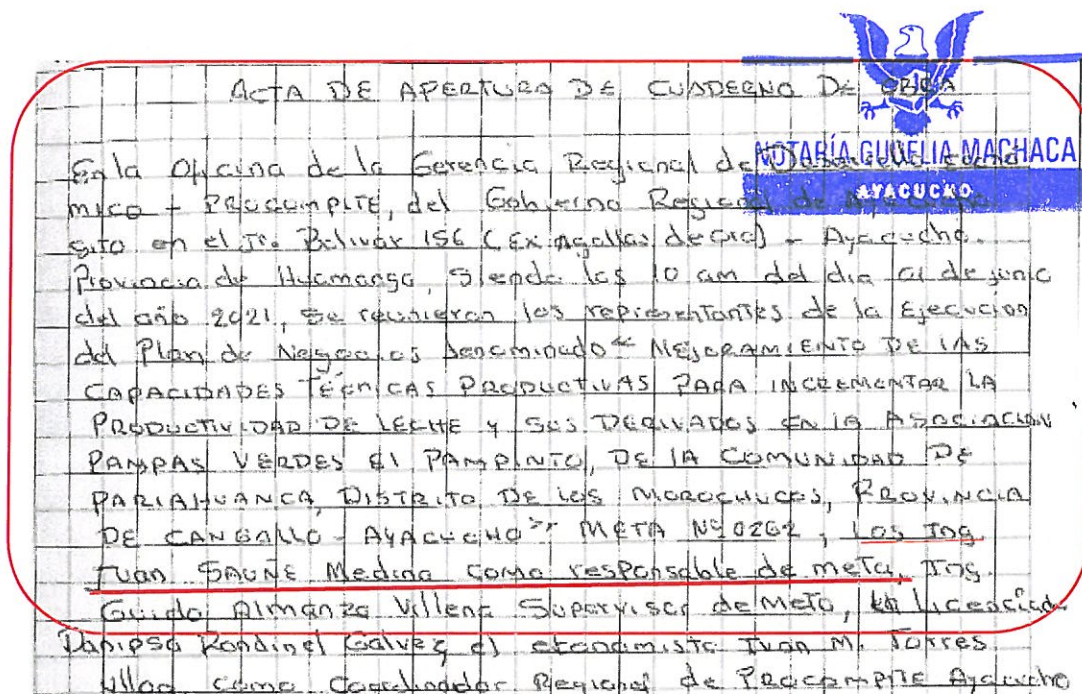 ACTA DE APERTURA DE CUADERNO DE OBRA
NOTARÍA GUUELIA MACHACA
AYACUCHO
En la Oficina de la Gerencia Regional de Desarrollo Econo
mico - PROCOMPITE, del Gobierno Regional de Ayacucho
sito en el Jr. Bolivar 156 (Ex Agallas de Oro) - Ayacucho.
Provincia de Huamanga, Siendo las 10 am del dia 01 de junio
del año 2021, se reunieron los representantes de la Ejecución
del Plan de Negocios denominado " MEJORAMIENTO DE LAS
CAPACIDADES TÉCNICAS PRODUCTIVAS PARA INCREMENTAR LA
PRODUCTIVIDAD DE LECHE Y SUS DERIVADOS EN LA ASOCIACION
PAMPAS VERDES El PAMPINTO, DE LA COMUNIDAD DE
PARIAHUANCA, DISTRITO DE LOS MOROCHUCOS, PROVINCIA
DE CANGALLO - AYACUCHO " META Nº 0262, Los Ing
Juan SAUÑE Medina como responsable de meta, Ing.
Guido Almanza Villena Supervisor de Meta, la licenciada
Danipsa Rondinel Galvez, el economista Ivan M. Torres
Ulloa como Coordinador Regional de PROCOMPITE Ayacucho